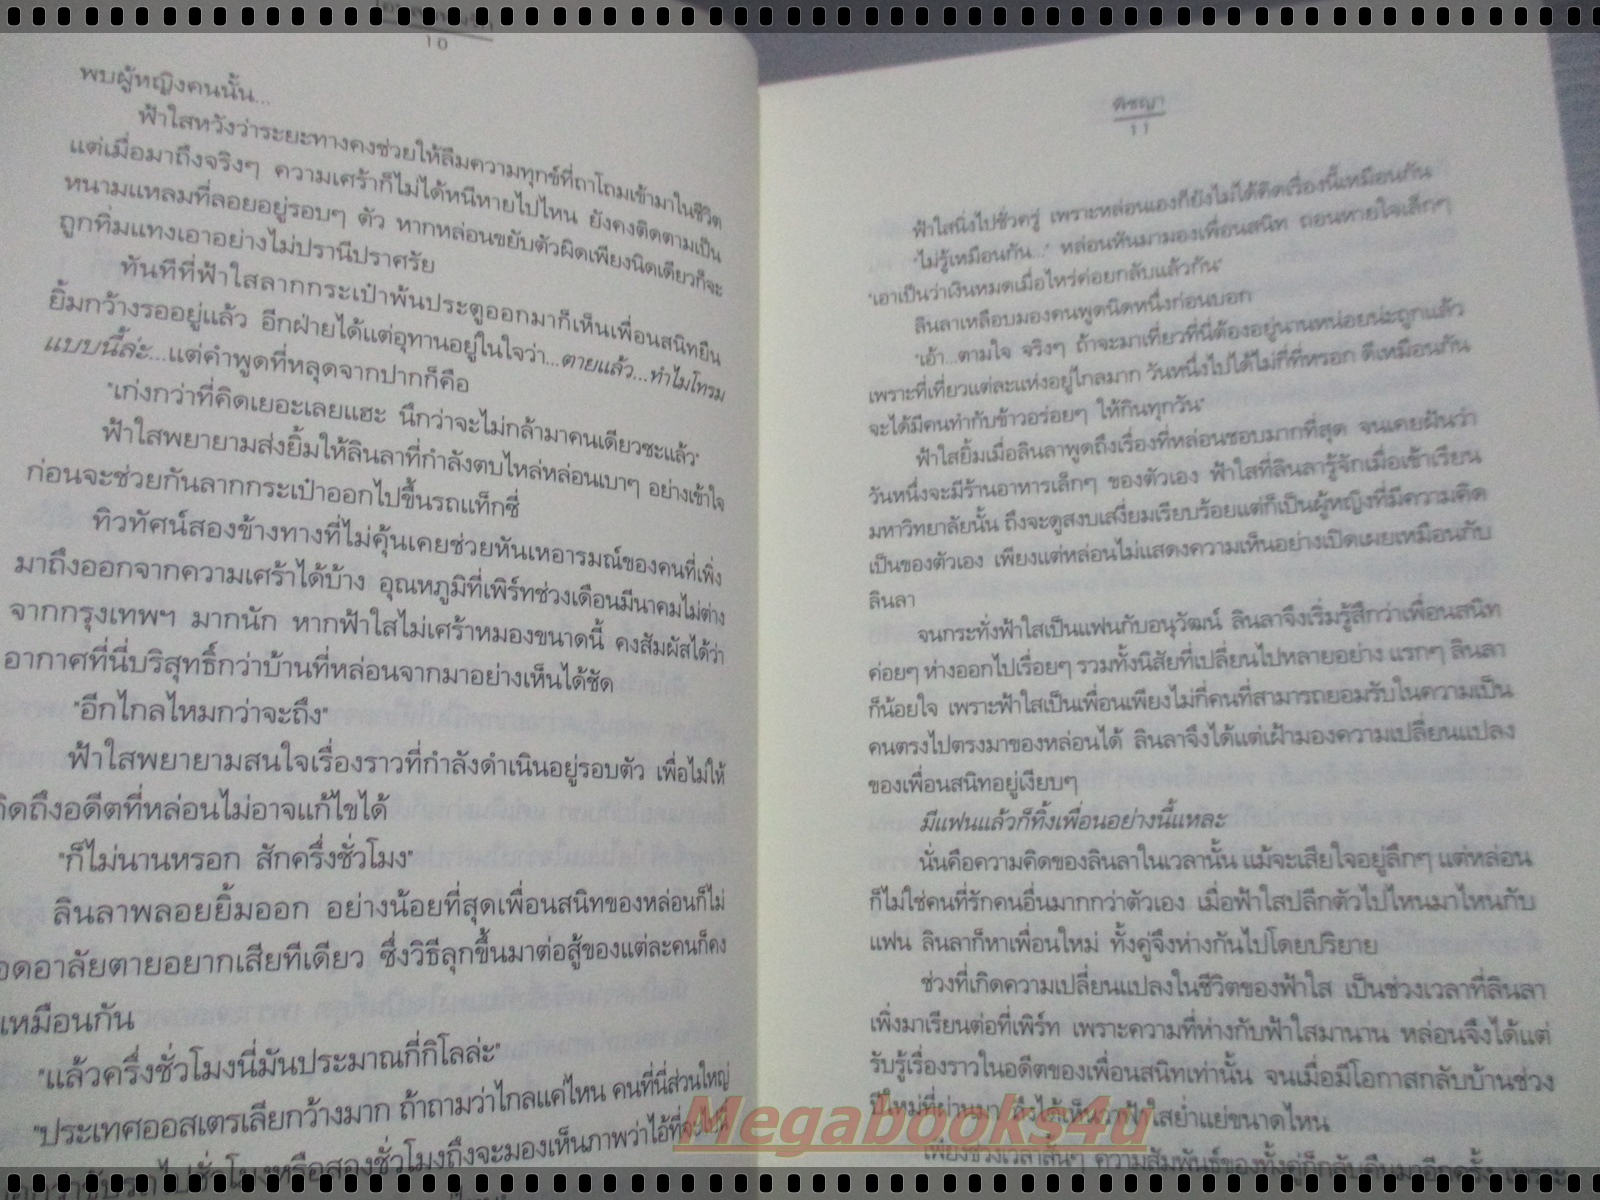 10
พบผู้หญิงคนนั้น...
ฟ้าใสหวังว่าระยะทางคงช่วยให้ลืมความทุกข์ที่ถาโถมเข้ามาในชีวิต
แต่เมื่อมาถึงจริงๆ ความเศร้าก็ไม่ได้หนีหายไปไหน ยังคงติดตามเป็น
หนามแหลมที่ลอยอยู่รอบๆ ตัว หากหล่อนขยับตัวผิดเพียงนิดเดียวก็จะ
ถูกทิ่มแทงเอาอย่างไม่ปรานีปราศรัย
ทันทีที่ฟ้าใสลากกระเป๋าพ้นประตูออกมาก็เห็นเพื่อนสนิทยืน
ยิ้มกว้างรออยู่แล้ว อีกฝ่ายได้แต่อุทานอยู่ในใจว่า...ตายแล้ว...ทำไมโทรม
แบบนี้ล่ะ...แต่คำพูดที่หลุดจากปากก็คือ
"เก่งกว่าที่คิดเยอะเลยแฮะ นึกว่าจะไม่กล้ามาคนเดียวซะแล้ว"
ฟ้าใสพยายามส่งยิ้มให้ลินลาที่กำลังตบไหล่หล่อนเบาๆ อย่างเข้าใจ
ก่อนจะช่วยกันลากกระเป๋าออกไปขึ้นรถแท็กซี่
ทิวทัศน์สองข้างทางที่ไม่คุ้นเคยช่วยหันเหอารมณ์ของคนที่เพิ่ง
มาถึงออกจากความเศร้าได้บ้าง อุณหภูมิที่เพิร์ทช่วงเดือนมีนาคมไม่ต่าง
จากกรุงเทพฯ มากนัก หากฟ้าใสไม่เศร้าหมองขนาดนี้ คงสัมผัสได้ว่า
อากาศที่นี่บริสุทธิ์กว่าบ้านที่หล่อนจากมาอย่างเห็นได้ชัด
"อีกไกลไหมกว่าจะถึง"
ฟ้าใสพยายามสนใจเรื่องราวที่กำลังดำเนินอยู่รอบตัว เพื่อไม่ให้
คิดถึงอดีตที่หล่อนไม่อาจแก้ไขได้
"ก็ไม่นานหรอก สักครึ่งชั่วโมง"
ลินลาพลอยยิ้มออก อย่างน้อยที่สุดเพื่อนสนิทของหล่อนก็ไม่
อดอาลัยตายอยากเสียทีเดียว ซึ่งวิธีลุกขึ้นมาต่อสู้ของแต่ละคนก็คง
เหมือนกัน
"แล้วครึ่งชั่วโมงนี่มันประมาณกี่กิโลล่ะ"
"ประเทศออสเตรเลียกว้างมาก ถ้าถามว่าไกลแค่ไหน คนที่นี่ส่วนใหญ่
กว่าขับรถไปชั่วโมงหรือสองชั่วโมงถึงจะมองเห็นภาพว่าไอ้ที่จะไป
ดิชญา
11
ฟ้าใสนิ่งไปชั่วครู่ เพราะหล่อนเองก็ยังไม่ได้คิดเรื่องนี้เหมือนกัน
"ไม่รู้เหมือนกัน..." หล่อนหันมามองเพื่อนสนิท ถอนหายใจเล็กๆ
"เอาเป็นว่าเงินหมดเมื่อไหร่ค่อยกลับแล้วกัน"
ลินลาเหลือบมองคนพูดนิดหนึ่งก่อนบอก
"เอ้า...ตามใจ จริงๆ ถ้าจะมาเที่ยวที่นี่ต้องอยู่นานหน่อยน่ะถูกแล้ว
เพราะที่เที่ยวแต่ละแห่งอยู่ไกลมาก วันหนึ่งไปได้ไม่กี่ที่หรอก ดีเหมือนกัน
จะได้มีคนทำกับข้าวอร่อยๆ ให้กินทุกวัน"
ฟ้าใสยิ้มเมื่อลินลาพูดถึงเรื่องที่หล่อนชอบมากที่สุด จนเคยฝันว่า
วันหนึ่งจะมีร้านอาหารเล็กๆ ของตัวเอง ฟ้าใสที่ลินลารู้จักเมื่อเข้าเรียน
มหาวิทยาลัยนั้น ถึงจะดูสงบเสงี่ยมเรียบร้อยแต่ก็เป็นผู้หญิงที่มีความคิด
เป็นของตัวเอง เพียงแต่หล่อนไม่แสดงความเห็นอย่างเปิดเผยเหมือนกับ
ลินลา
จนกระทั่งฟ้าใสเป็นแฟนกับอนุวัฒน์ ลินลาจึงเริ่มรู้สึกว่าเพื่อนสนิท
ค่อยๆ ห่างออกไปเรื่อยๆ รวมทั้งนิสัยที่เปลี่ยนไปหลายอย่าง แรกๆ ลินลา
ก็น้อยใจ เพราะฟ้าใสเป็นเพื่อนเพียงไม่กี่คนที่สามารถยอมรับในความเป็น
คนตรงไปตรงมาของหล่อนได้ ลินลาจึงได้แต่เฝ้ามองความเปลี่ยนแปลง
ของเพื่อนสนิทอยู่เงียบๆ
มีแฟนแล้วก็ทิ้งเพื่อนอย่างนี้แหละ
นั่นคือความคิดของลินลาในเวลานั้น แม้จะเสียใจอยู่ลึกๆ แต่หล่อน
ก็ไม่ใช่คนที่รักคนอื่นมากกว่าตัวเอง เมื่อฟ้าใสปลีกตัวไปไหนมาไหนกับ
แฟน ลินลาก็หาเพื่อนใหม่ ทั้งคู่จึงห่างกันไปโดยปริยาย
ช่วงที่เกิดความเปลี่ยนแปลงในชีวิตของฟ้าใส เป็นช่วงเวลาที่ลินลา
เพิ่งมาเรียนต่อที่เพิร์ท เพราะความที่ห่างกับฟ้าใสมานาน หล่อนจึงได้แต่
รับรู้เรื่องราวในอดีตของเพื่อนสนิทเท่านั้น จนเมื่อมีโอกาสกลับบ้านช่วง
ปีใหม่ที่ผ่านมา ถึงได้เห็นว่าฟ้าใสย่ำแย่ขนาดไหน
เพียงช่วงเวลาสั้นๆ ความสัมพันธ์ของทั้งคู่ก็กลับคืนมาอีกครั้ง เพราะ
Megabooks4u